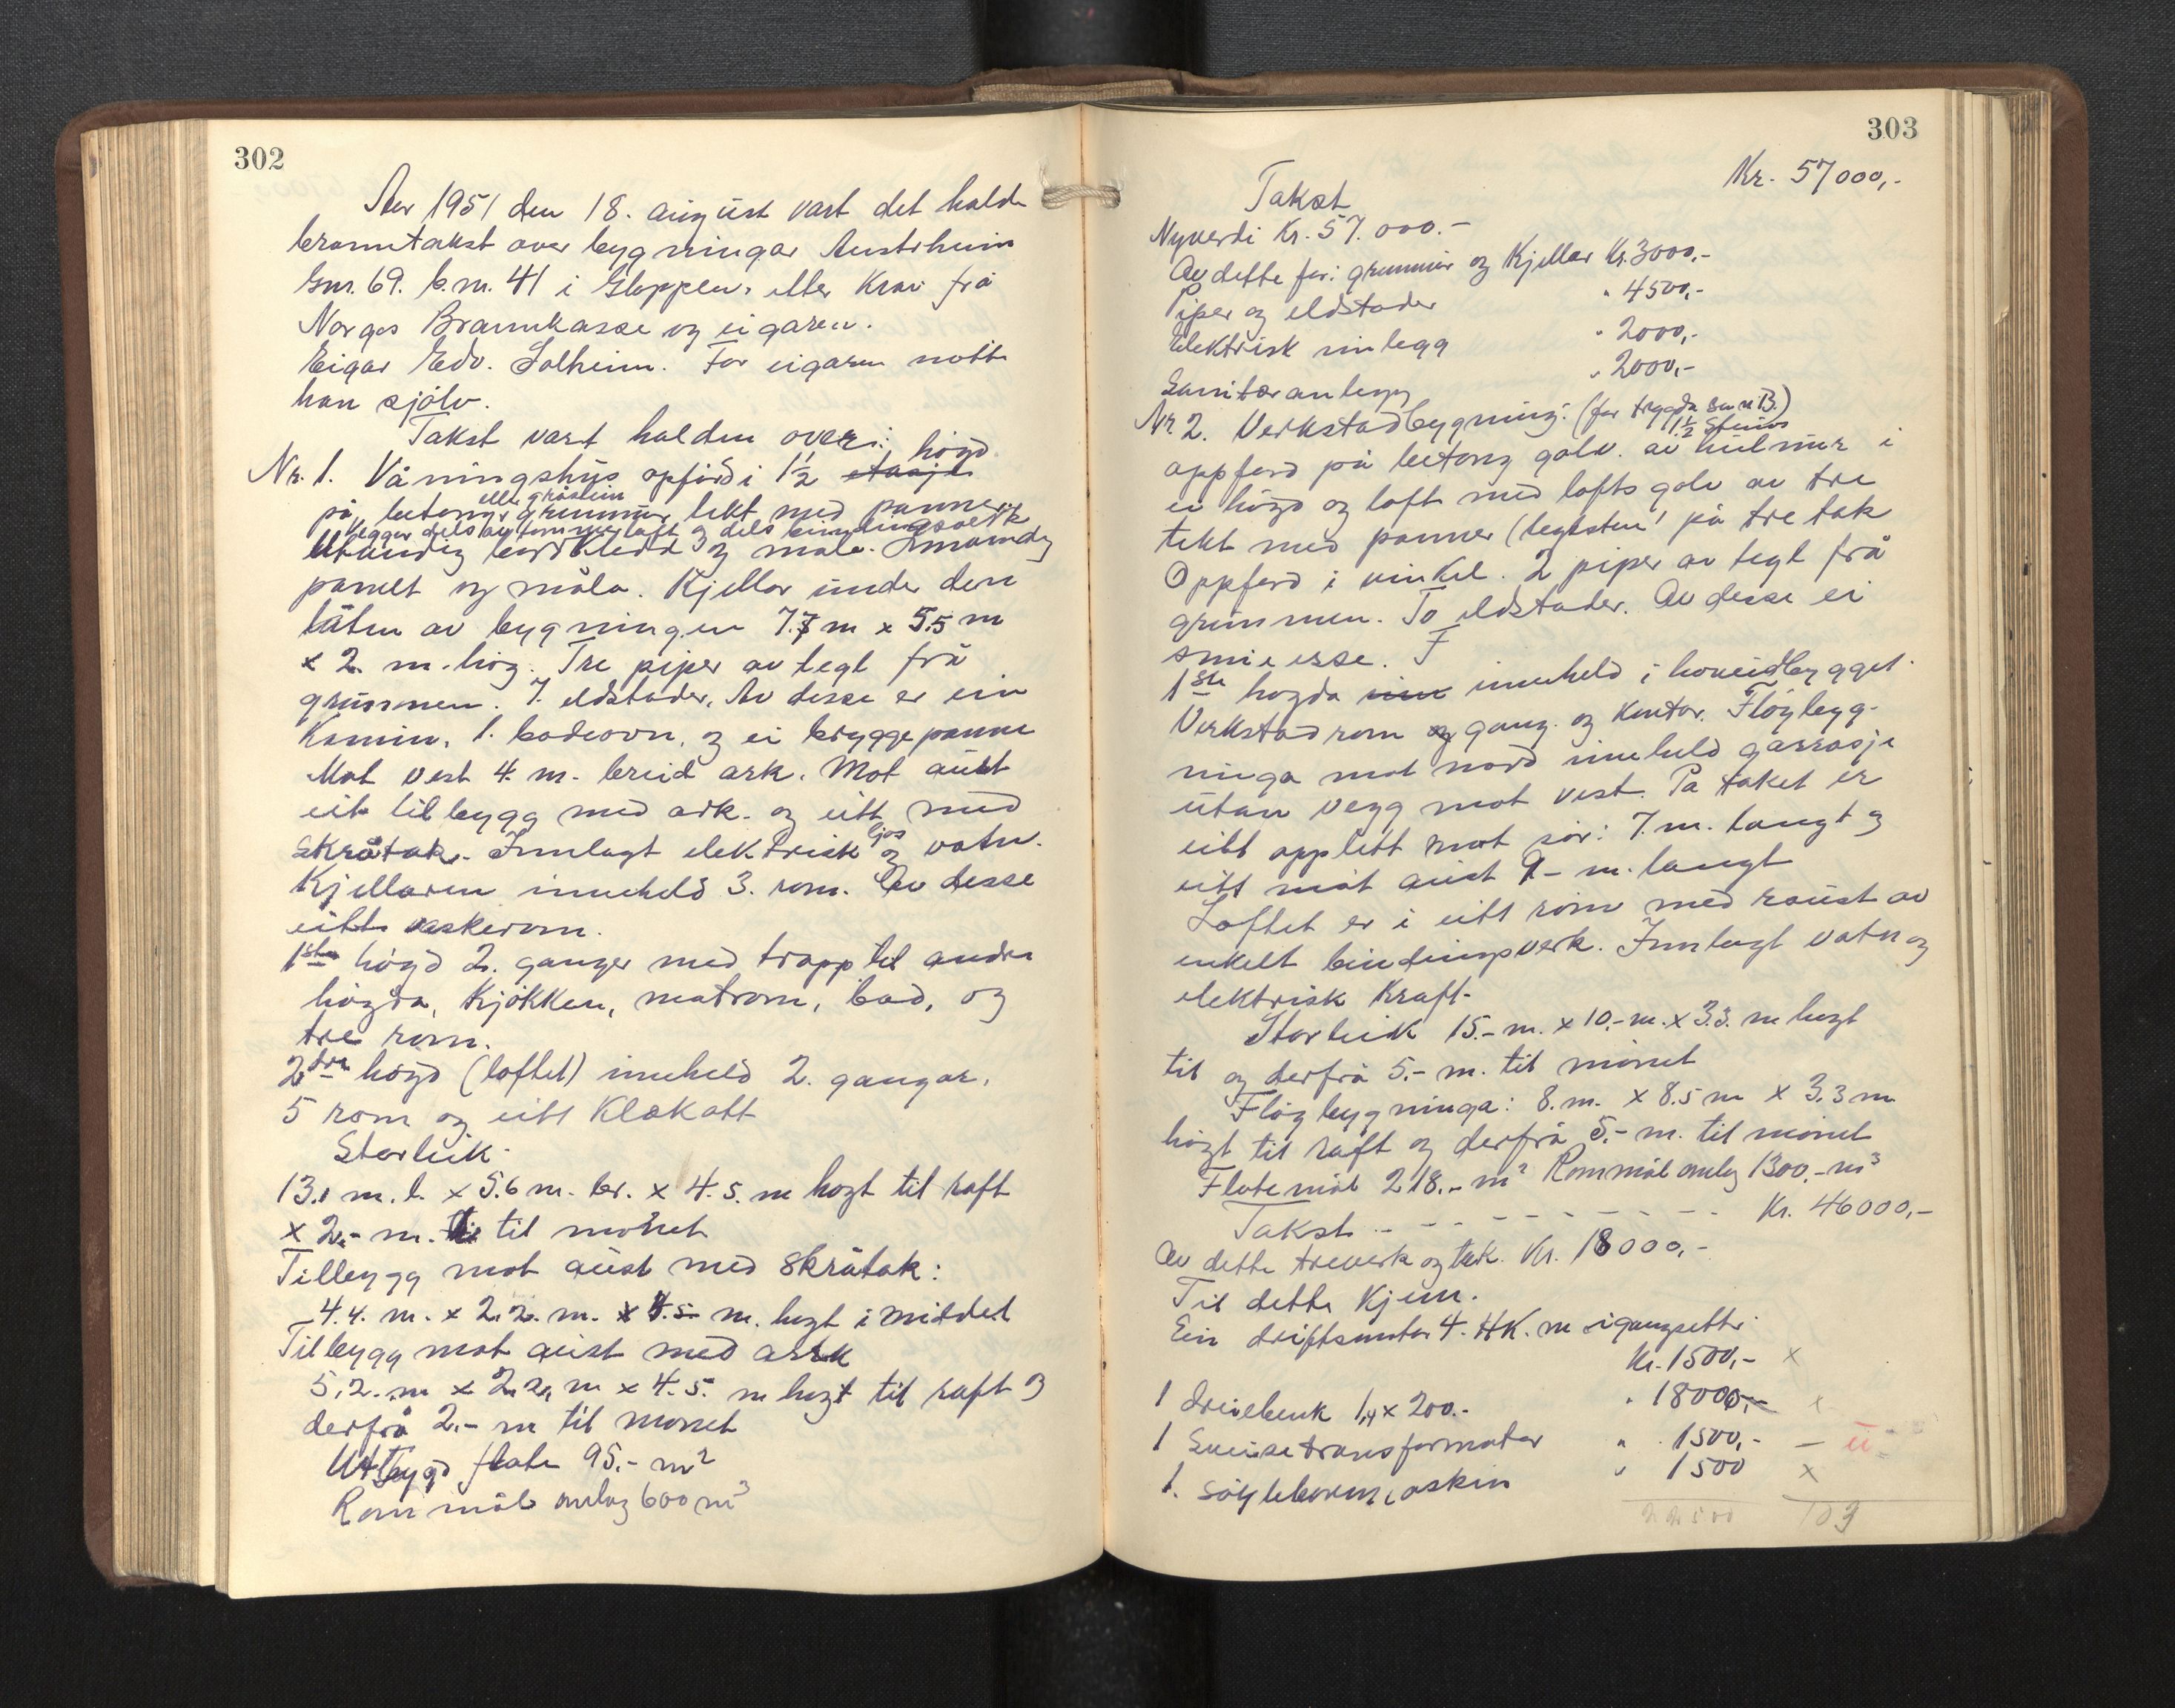 302
Aar 1951 den 18. august vart det halde
branntakst over bygningar Austrheim
Gnr. 69. b.nr. 41 i Gloppen. etter Krav frå
Norges Brannkasse og eigaren.
Eigar Edv. Solheim. For eigaren møtte
han sjølv.
Takst vart halden over:
høgd
Nr. 1. Våningshus opførd i 1½ etasje
eller gråstein
på betong grunnmur, tekt med panner.
Vegger dels av tømmer loft og dels bindingsverk
Utvendig bordkledd og mala. Innvendig
panelt og måla. Kjellar under den
luten av bygningen 7.7 m x 5.5 m
x 2. m. høg. Tre piper av tegl frå
grunnen. 7. eldstader. Av desse er ein
Kamin, 1. badeovn, og ei bryggepanne
Mot vest 4. m. breid ark. Mot aust
eit tilbygg med ark. og eitt med
ljos
skråtak. Innlagt elektrisk og vatn.
Kjellaren inneheld 3. rom. Av desse
eitt vaskerom.
1ste høgd 2. ganger med trapp til andre
høgda, Kjøkken, matrom, bad, og
tre rom.
2dre høgd (loftet) inneheld 2. gangar,
5 rom og eitt Klækott
Storleik.
13.1 m. l. x 5.6 m. br. x 4.5. m høgt til raft
x 2,- m. til mønet
Tilbygg mot aust med skråtak:
4.4. m. x 2.2. m. x 4.5 m. høgt i middel
Tilbygg mot aust med ark
5.2. m x 2.2. m x 4.5. m høgt til raft og
derfrå 2.- m til mønet
Utbygd flate 95.- m²
Rommål omlag 600 m³
303
Takst Kr. 57000,-
Nyverdi Kr. 57.000.-
Av dette for: grunnmur og Kjellar Kr. 3000,-
Piper og eldstader " 4500,-
Elektrisk innlegg " 2000,-
Sanitæranlegg " 2000,-
Nr 2. Verkstadbygning: (før trygda som B.)
1½ Steins
oppførd på betong golv. av hulmur i
ei høgd og loft med lofts golv av tre
tekt med panner (teglsten) på tre tak
Oppførd i vinkel. 2 piper av tegl frå
grunnen. To eldstader. Av desse ei
smie esse.
1ste høgda inneheld i hovudbygget.
Verkstadrom og gang. og Kontor. Fløybyg-
ninga mot nord inneheld garrasje
utan vegg mot vest. På taket er
eitt opplett mot sør: 7. m. langt og
eitt mot aust 9- m. langt
Loftet er i eitt rom med raust av
enkelt bindingsverk. Innlagt vatn og
elektrisk Kraft.
Storleik 15.- m. x 10.- m. x 3.3. m høgt
til og derfrå 5.- m. til mønet
Fløybygninga: 8. m. x 8.5 m x 3.3 m
høgt til raft og derfrå 5.- m. til mønet
Flatemål 218.- m² Rommål omlag 1300.- m³
Takst - - - - - - - - Kr. 46000,-
Av dette treverk og tak. Kr. 18000,-
Til dette Kjem.
Ein driftsmotor 4. HK. m igangsettr.
Kr. 1500,- x
1 dreiebenk 1,4 x 200.- " 18000,- x
1 Sveisetransformator " 1500,- -
1. Søyleboremaskin " 1500 x
22500